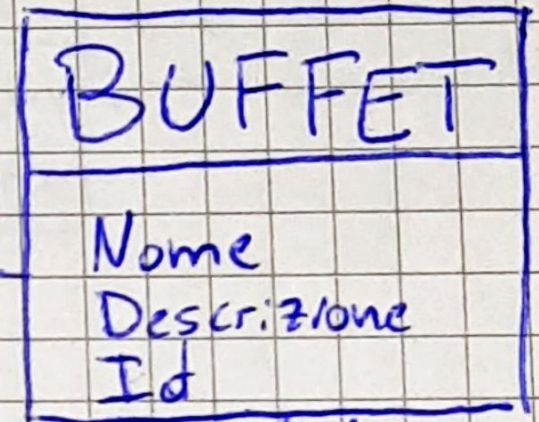 BUFFET
Nome
Descrizione
Id